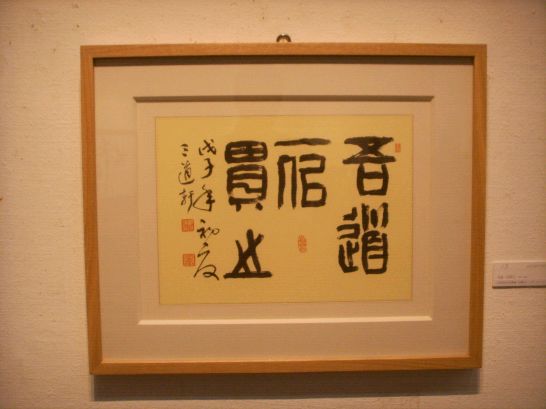 吾道
一以
貫之
戊子年初夏
三道軒